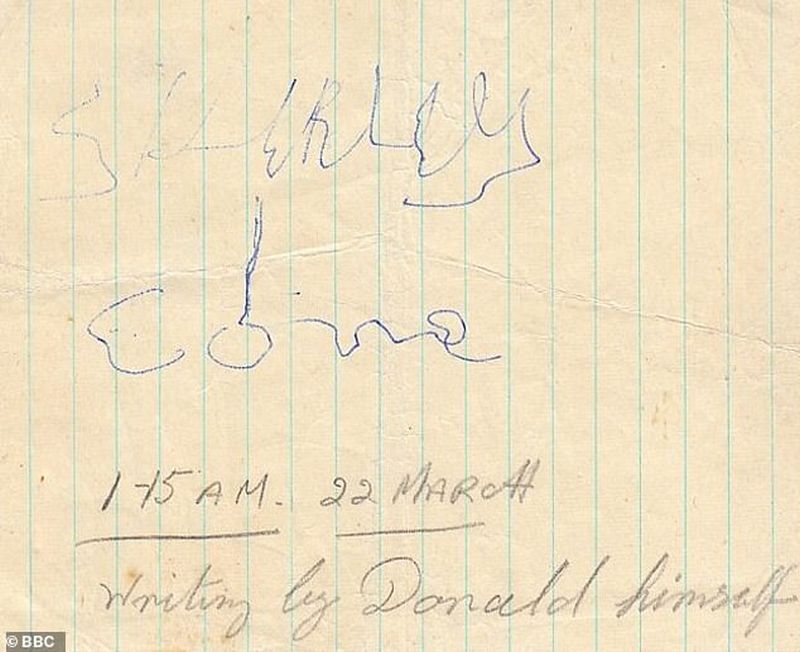 SHERLEY
Edna
1-15 A.M. 22 MARCH
Writing by Donald himself
© BBC